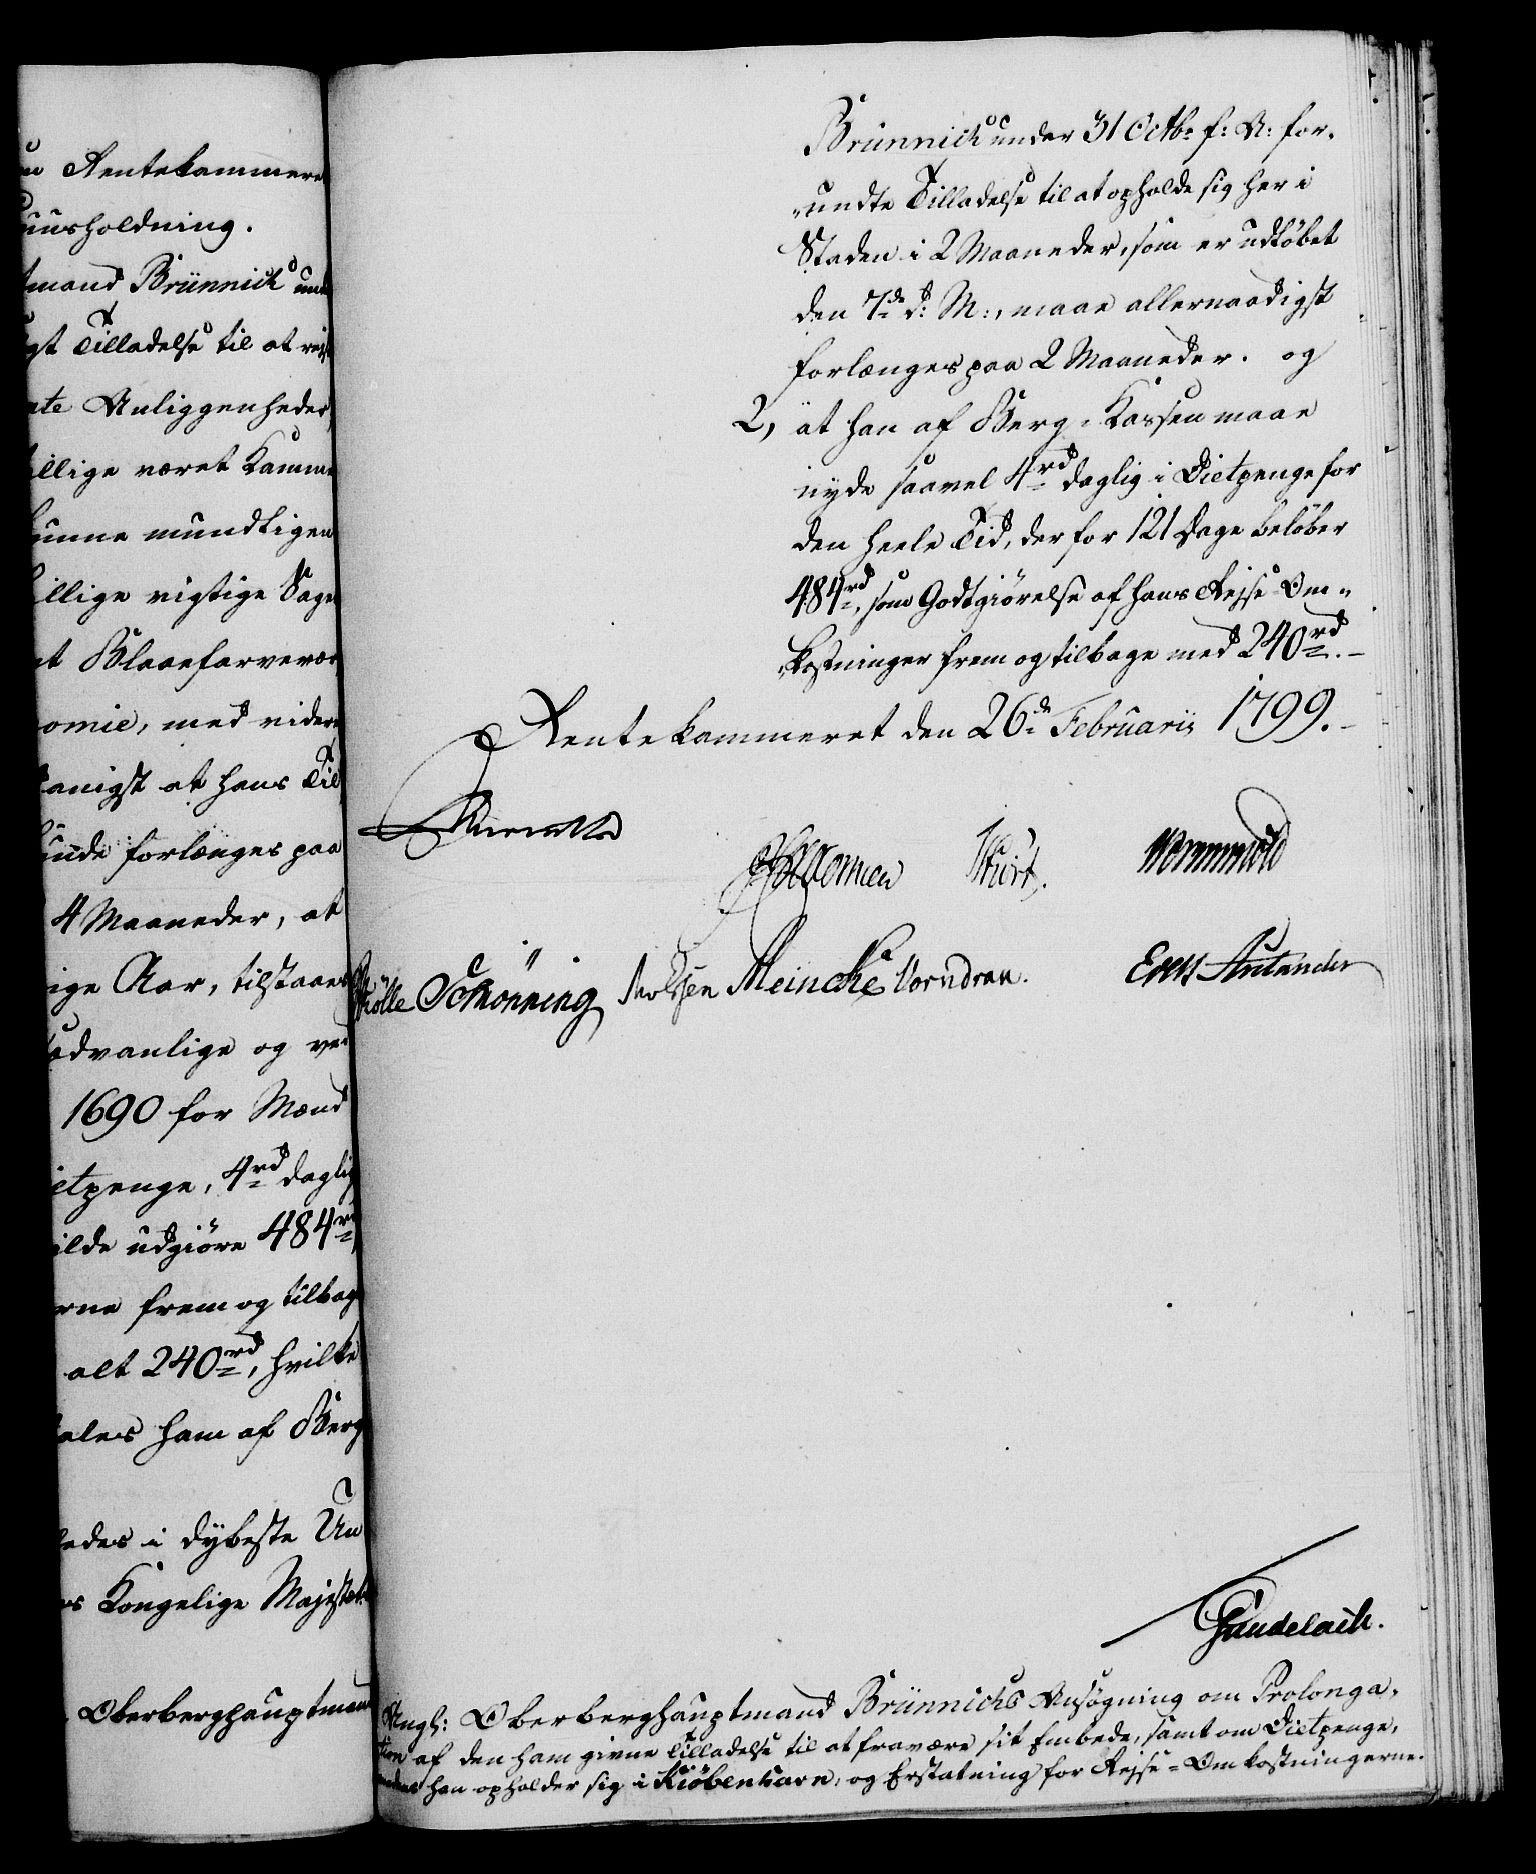 en Rentekammere
uusholdning.
mand Brünnich und
gt Tilladelse til at reis
ate Anliggenheder
illige været Kamme
kunne mundtligen
illige vigtige Sage
t Blaaefarvevær
omie, med videre
anigst at hans Til
unde forlænges paa
4 Maaneder, at
ige Aar, tilstaaes
sædvanlige og ved
1690 for Mænd
ietpenge, 4 rd daglig
ilde udgiøre 484 rd
rne frem og tilbage
alt 240 rd, hvilke
tales ham af Berg
ledes i dybeste Un
s Kongelige Majestæt
Oberberghauptmand
Brünnich under 31 Octbr f: A: for-
undte Tilladelse til at opholde sig her i
Staden i 2 Maaneder, som er udløbet
den 7de d: M:, maae allernaadigst
forlænges paa 2 Maaneder. og
2, at han af Berg-Kassen maae
nyde saavel 4 rd daglig i Dietpenge for
den heele Tid, der for 121 Dage beløber
484 rd, som Godtgiørelse af hans Rejse-Om-
kostninger frem og tilbage med 240 rd.-
Rentekammeret den 26de Februarii 1799.-
Wormskiold
Schønning Meincke Vorndran.
Gundelach.
Angl: Oberberghauptmand Brünnichs Ansøgning om Prolonga-
tion af den ham givne Tilladelse til at fravære sit Embede, samt om Dietpenge,
medens han opholder sig i Kiøbenhavn, og Erstatning for Rejse-Omkostningerne.